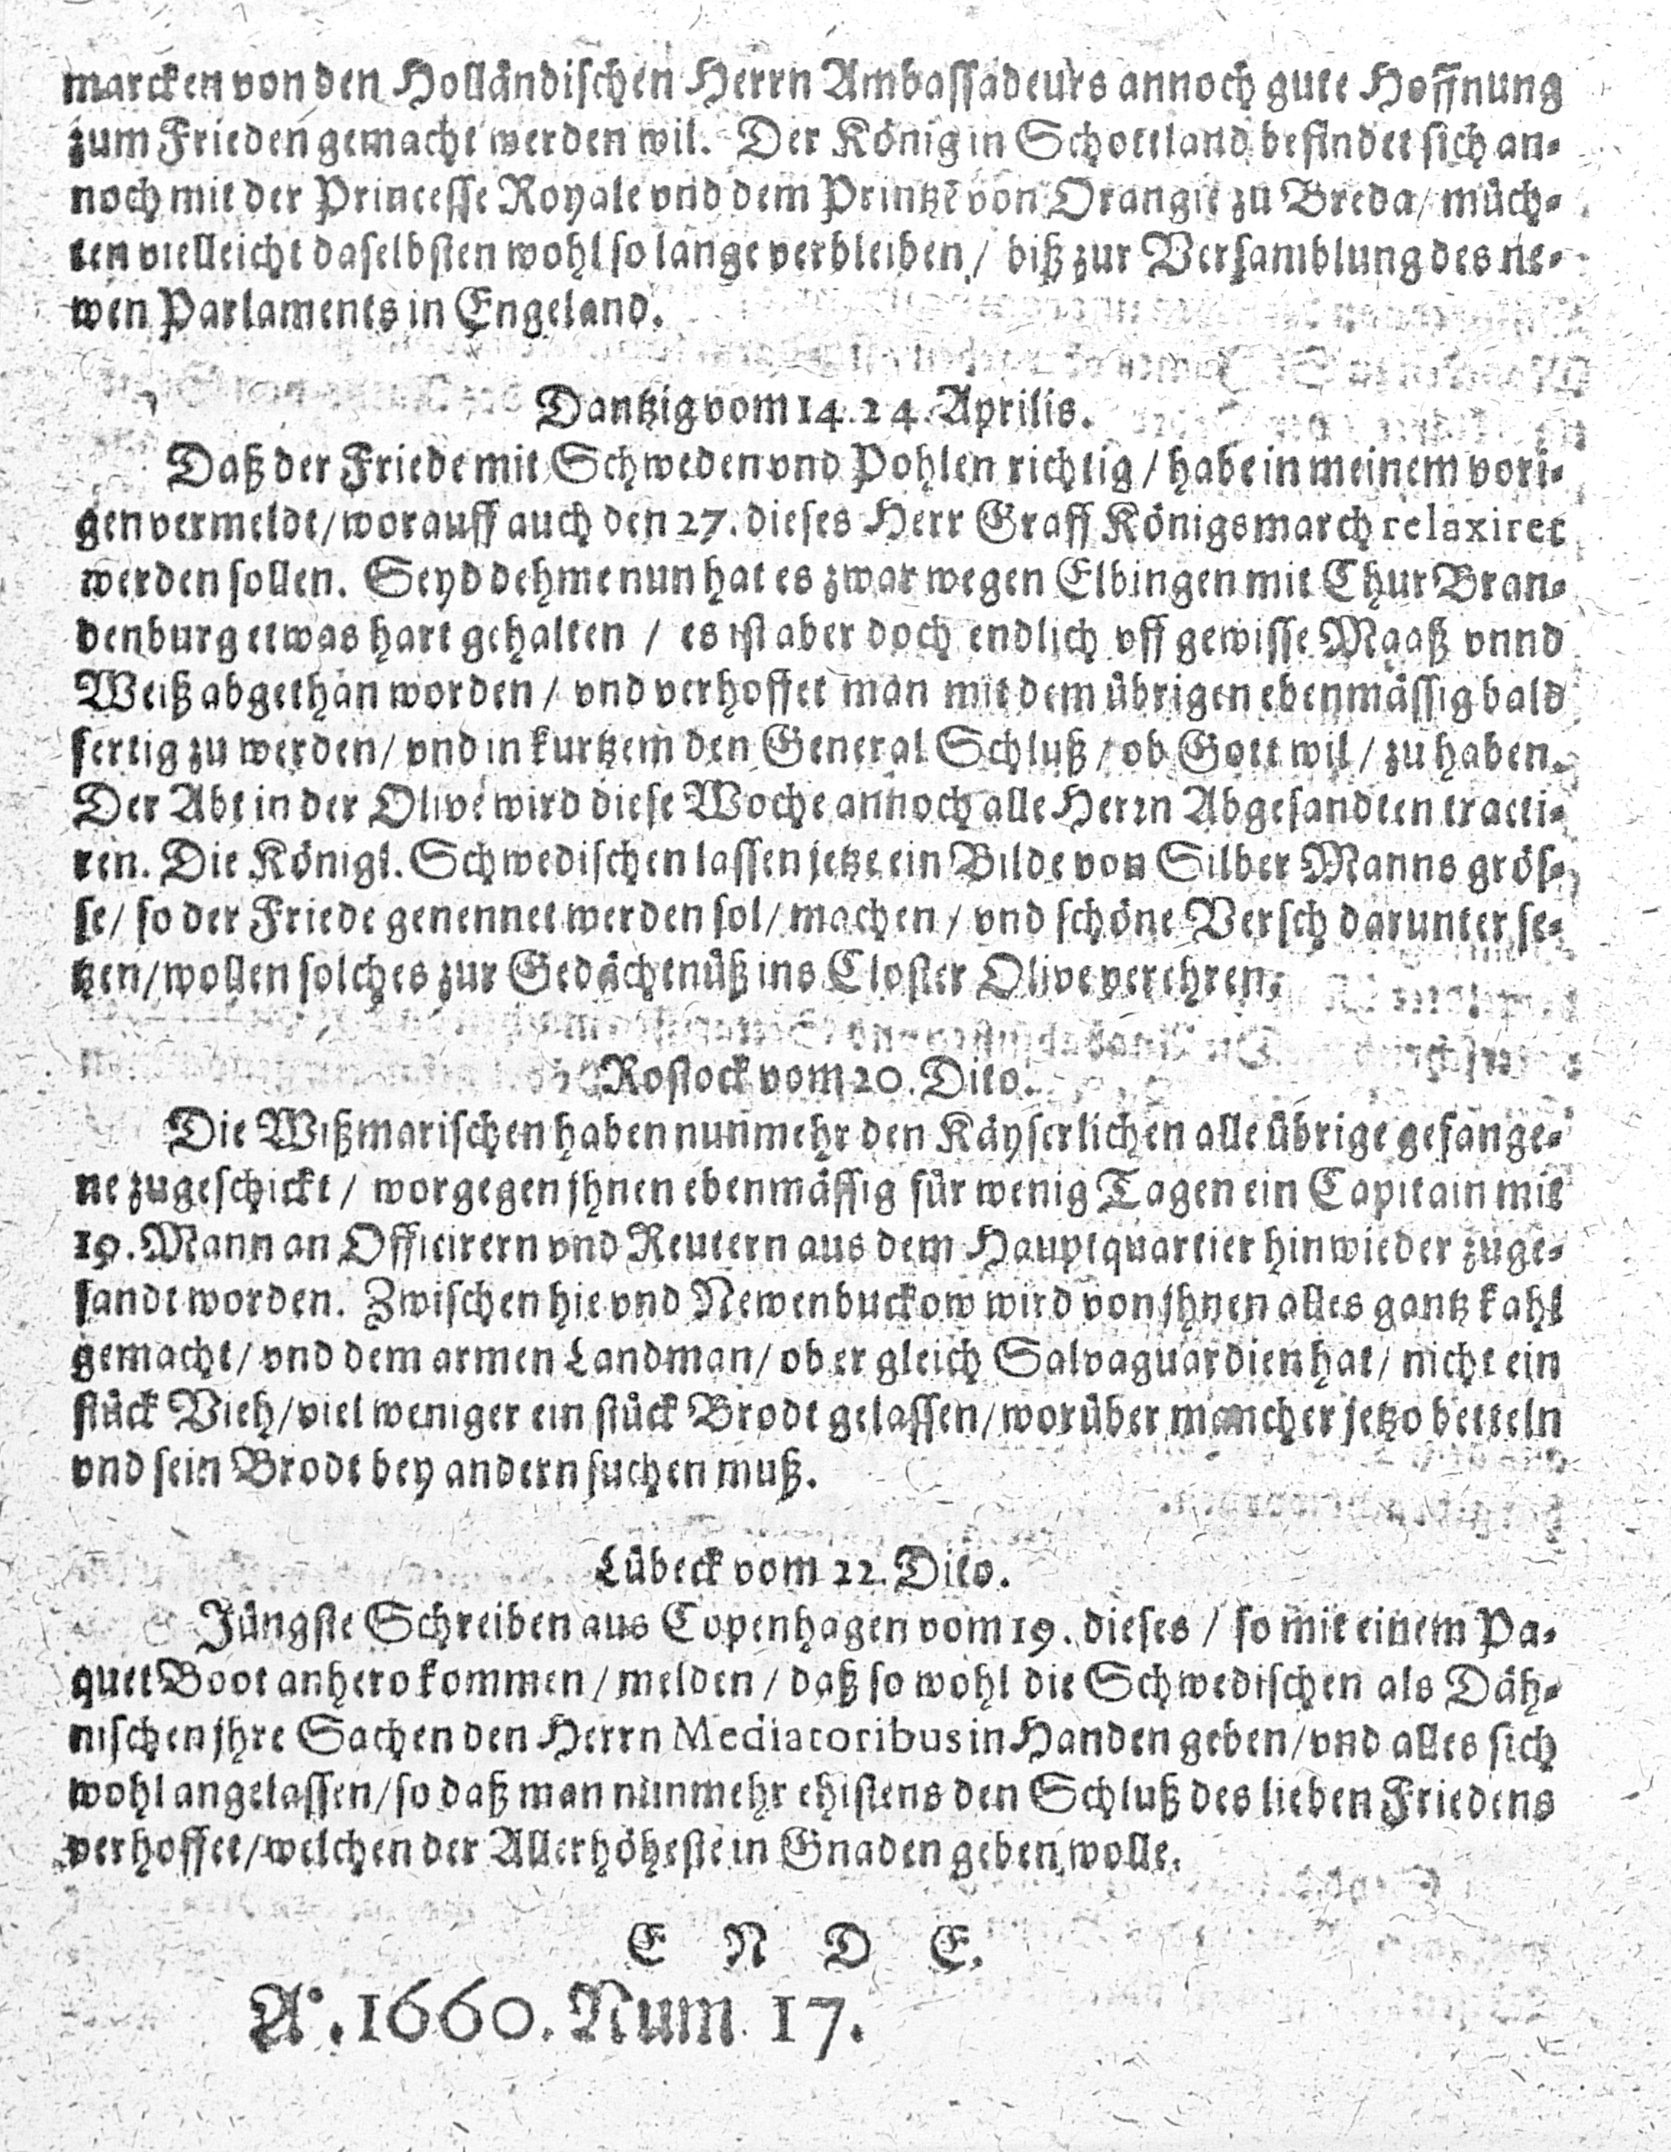 marcken von den Holländischen Herrn Ambassadeurs annoch gute Hoffnung
zum Frieden gemacht werden wil. Der König in Schottland befindet sich an-
noch mit der Princesse Royale vnd dem Printzē von Orangie zu Breda/ müch-
ten vielleicht daselbsten wohl so lange verbleiben/ biß zur Versamblung des ne-
wen Parlaments in Engeland.
Dantzig vom 14.24. Aprilis.
Daß der Friede mit Schweden vnd Pohlen richtig / habe in meinem vori-
gen vermeldt/ worauff auch den 27. dieses Herr Graff Königsmarch relaxiret
werden sollen. Seyd dehme nun hat es zwar wegen Elbingen mit Chur Bran-
denburg etwas hart gehalten / es ist aber doch endlich vff gewisse Maaß vnnd
Weiß abgethan worden / vnd verhoffet man mit dem übrigen ebenmässig bald
fertig zu werden/ vnd in kurtzem den General Schluß / ob Gott wil / zu haben.
Der Abt in der Olive wird diese Woche annoch alle Herrn Abgesandten tracti-
ren. Die Königl. Schwedischen lassen jetzt ein Bilde von Silber Manns grös-
se/ so der Friede genennet werden sol/ machen / vnd schöne Versch darunter se-
tzen/ wollen solches zur Gedächtnüß ins Closter Olive verehren.
Rostock vom 20. Dito.
Die Wißmarischen haben nunmehr den Käyserlichen alle übrige gefange-
ne zugeschickt / worgegen jhnen ebenmässig für wenig Tagen ein Capitain mit
19. Mann an Officirern vnd Reutern aus dem Hauptquartier hinwieder zuge-
sandt worden. Zwischen hie vnd Newenbuckow wird von jhnen alles gantz kahl
gemacht/ vnd dem armen Landman/ ob er gleich Salvaguardien hat/ nicht ein
stück Vieh/ viel weniger ein stück Brodt gelassen/ worüber mancher jetzo betteln
vnd sein Brodt bey andern suchen muß.
Lübeck vom 22. Dito.
Jüngste Schreiben aus Copenhagen vom 19. dieses / so mit einem Pa-
quet Boot anhero kommen / melden / daß so wohl die Schwedischen als Däh-
nischen jhre Sachen den Herrn Mediatoribus in Handen geben/ vnd alles sich
wohl angelassen/ so daß man nunmehr ehistens den Schluß des lieben Friedens
verhoffet/ welchen der Allerhöheste in Gnaden geben wolle.
E N D E.
A°. 1660. Num 17.